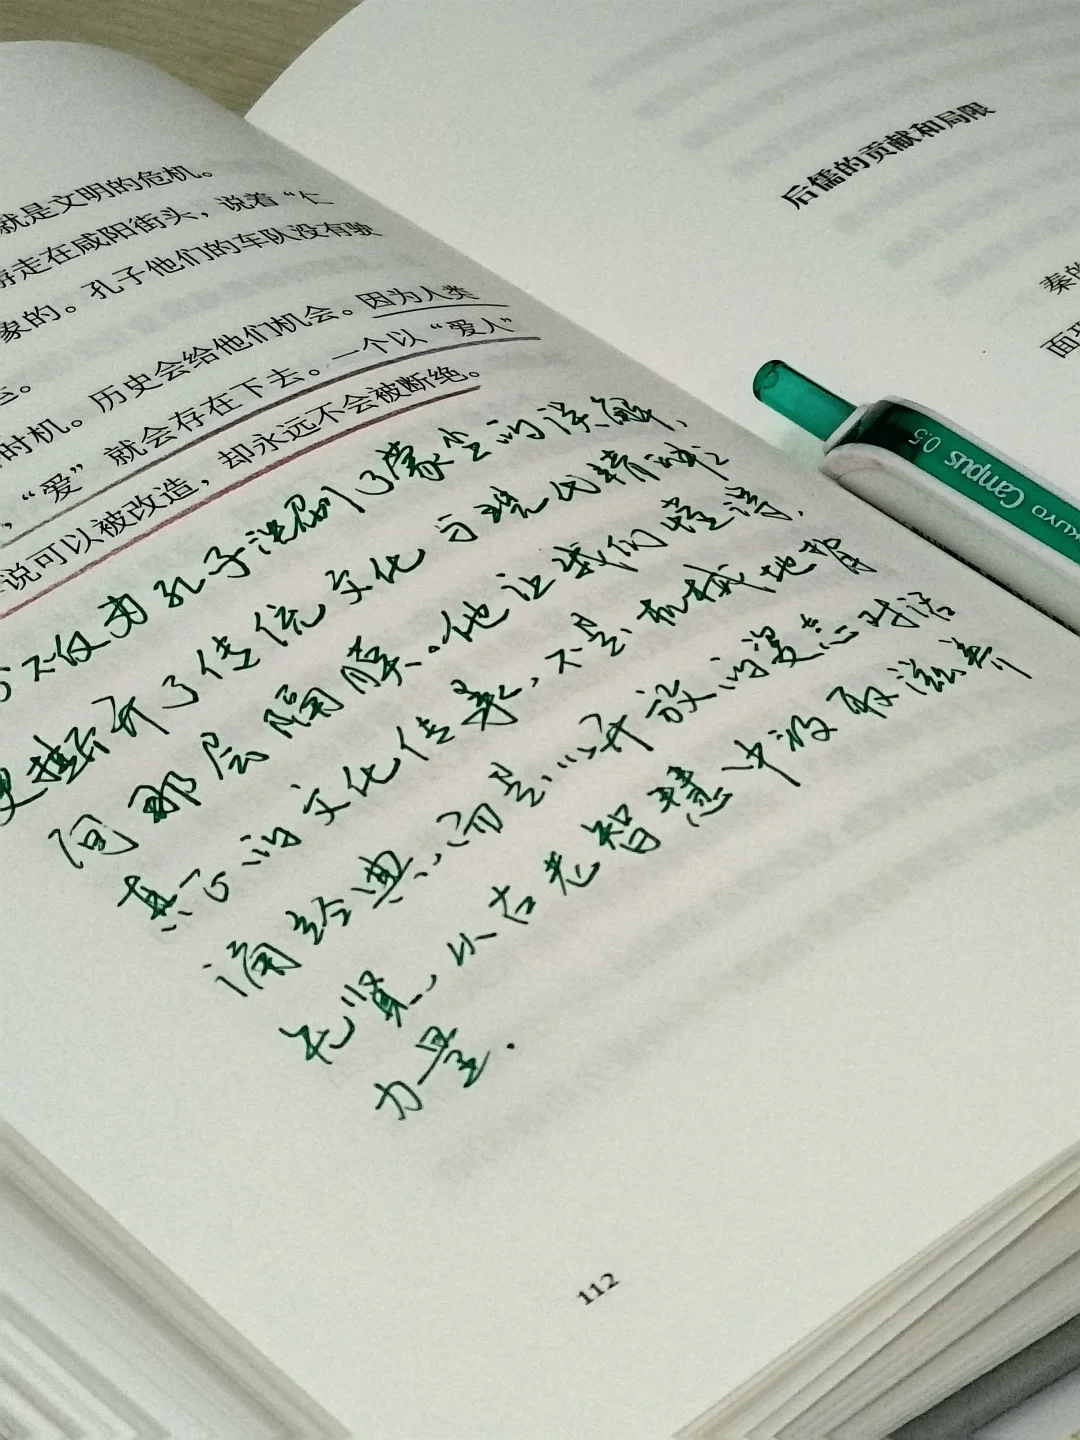 就是文明的危机。
游走在咸阳街头，说着“仁
象的。孔子他们的车队没有驶
时机。历史会给他们机会。因为人类
，“爱”就会存在下去。一个以“爱人”
说可以被改造，却永远不会被断绝。
不仅为孔子洗刷了蒙尘的误解，
更撕开了传统文化与现代精神之
间那层隔膜。他让我们懂得，
真正的文化传承，不是机械地背
诵经典，而是以开放的姿态对话
先贤，从古老智慧中汲取滋养
力量.
112
后儒的贡献和局限
秦的
面
KUYO Campus 0.5